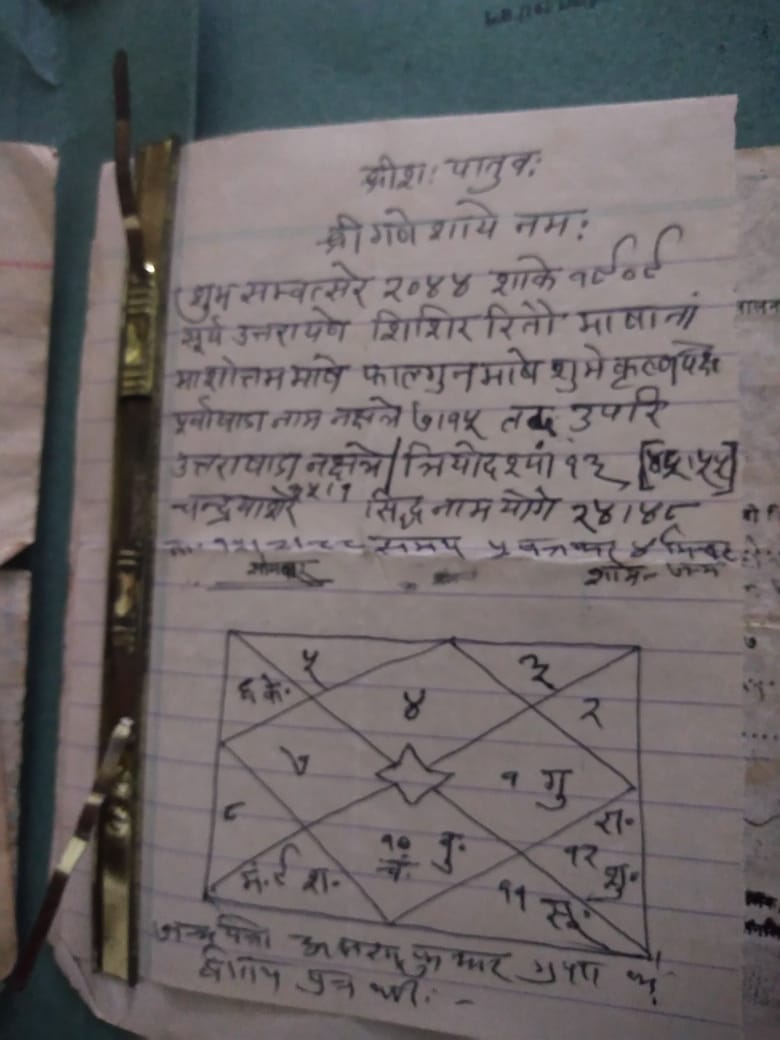 श्रीशः पातुवः
श्री गणेशाये नमः
शुभ सम्वत्सरे २०४४ शाके १९०९
सूर्य उत्तरायणे शिशिर रितौ माषानां
माशोत्तम माषे फाल्गुन माषे शुभे कृष्णपक्षे
पूर्वाषाडा नाम नक्षत्रे ७।१५ तद उपरि
उत्तराषाडा नक्षत्रे त्रियोदश्यां १३ [४५।५५]
सिद्ध नाम योगे २४।४८
समय ५ बजकर ४ मिनट
सोमवार
शाम जन्म
५
३
६ के.
४
२
७
१ गु
८
रा.
१० बु.
चं.
१२
शु.
मं. ९ श.
११ सू.
जन्म पत्री कुमार गुप्ता
द्वितीय पुत्र